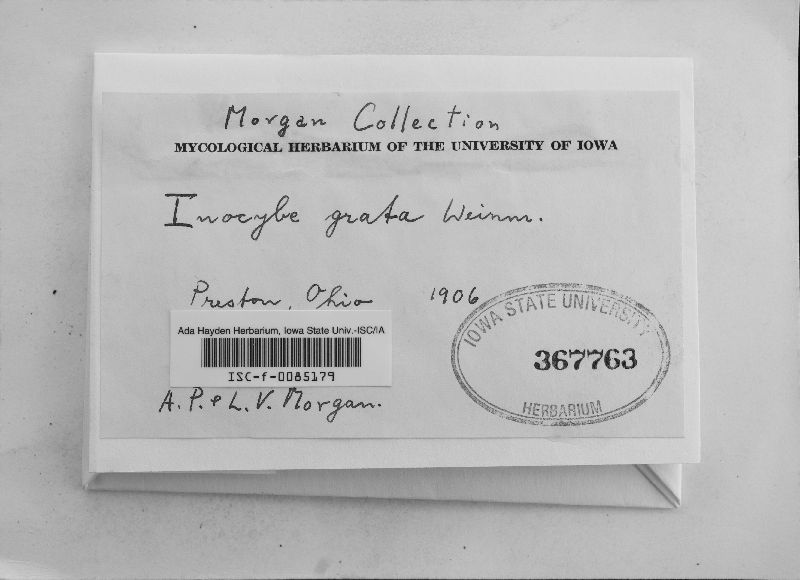 Morgan Collection
MYCOLOGICAL HERBARIUM OF THE UNIVERSITY OF IOWA
Inocybe grata Weinm.
Preston, Ohio 1906
IOWA STATE UNIVERSITY
367763
HERBARIUM
Ada Hayden Herbarium, Iowa State Univ.-ISC/IA
ISC-f-0085179
A. P. & L. V. Morgan.